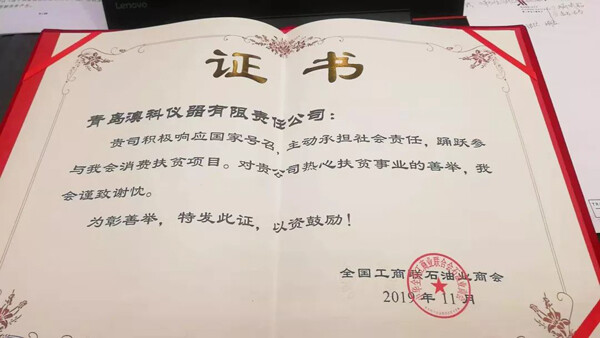 Lenovo
证书
青岛澳科仪器有限责任公司：
贵司积极响应国家号召，主动承担社会责任，踊跃参
与我会消费扶贫项目。对贵公司热心扶贫事业的善举，我
会谨致谢忱。
为彰善举，特发此证，以资鼓励！
全国工商联石油业商会
2019 年 11 月